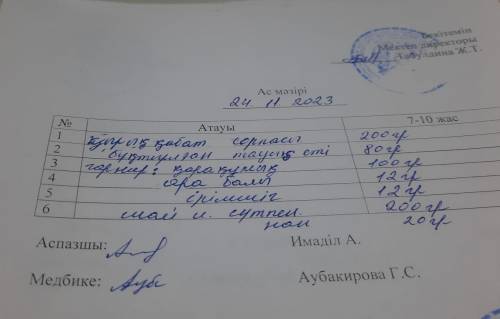 Бекітемін
Мектеп директоры
Ж.Т.
Ас мәзірі
24 11 2023
№ Атауы 7-10 жас
1 қырық қабат сорпасы 200гр
2 бұқтырылған тауық еті 80гр
3 гарнир: қарақұмық 100гр
4 ара балы 12гр
5 ірімшік 12гр
6 шай и. сүтпен 200гр
нан 20гр
Аспазшы: Имаділ А.
Медбике: Аубакирова Г.С.